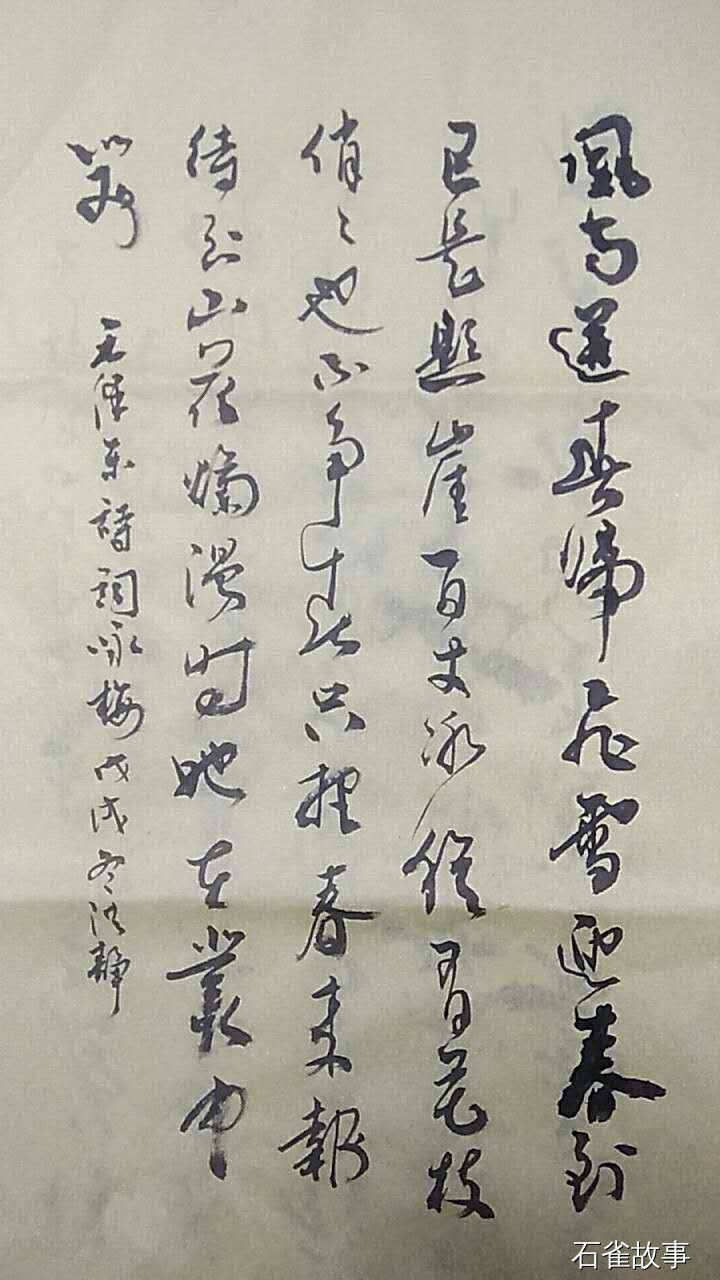 風雨送春歸飛雪迎春到
已是懸崖百丈冰猶有花枝
俏〻也不争春只把春来報
待到山花爛漫時她在叢中
笑
毛澤東詩詞咏梅戊戌冬静
石雀故事